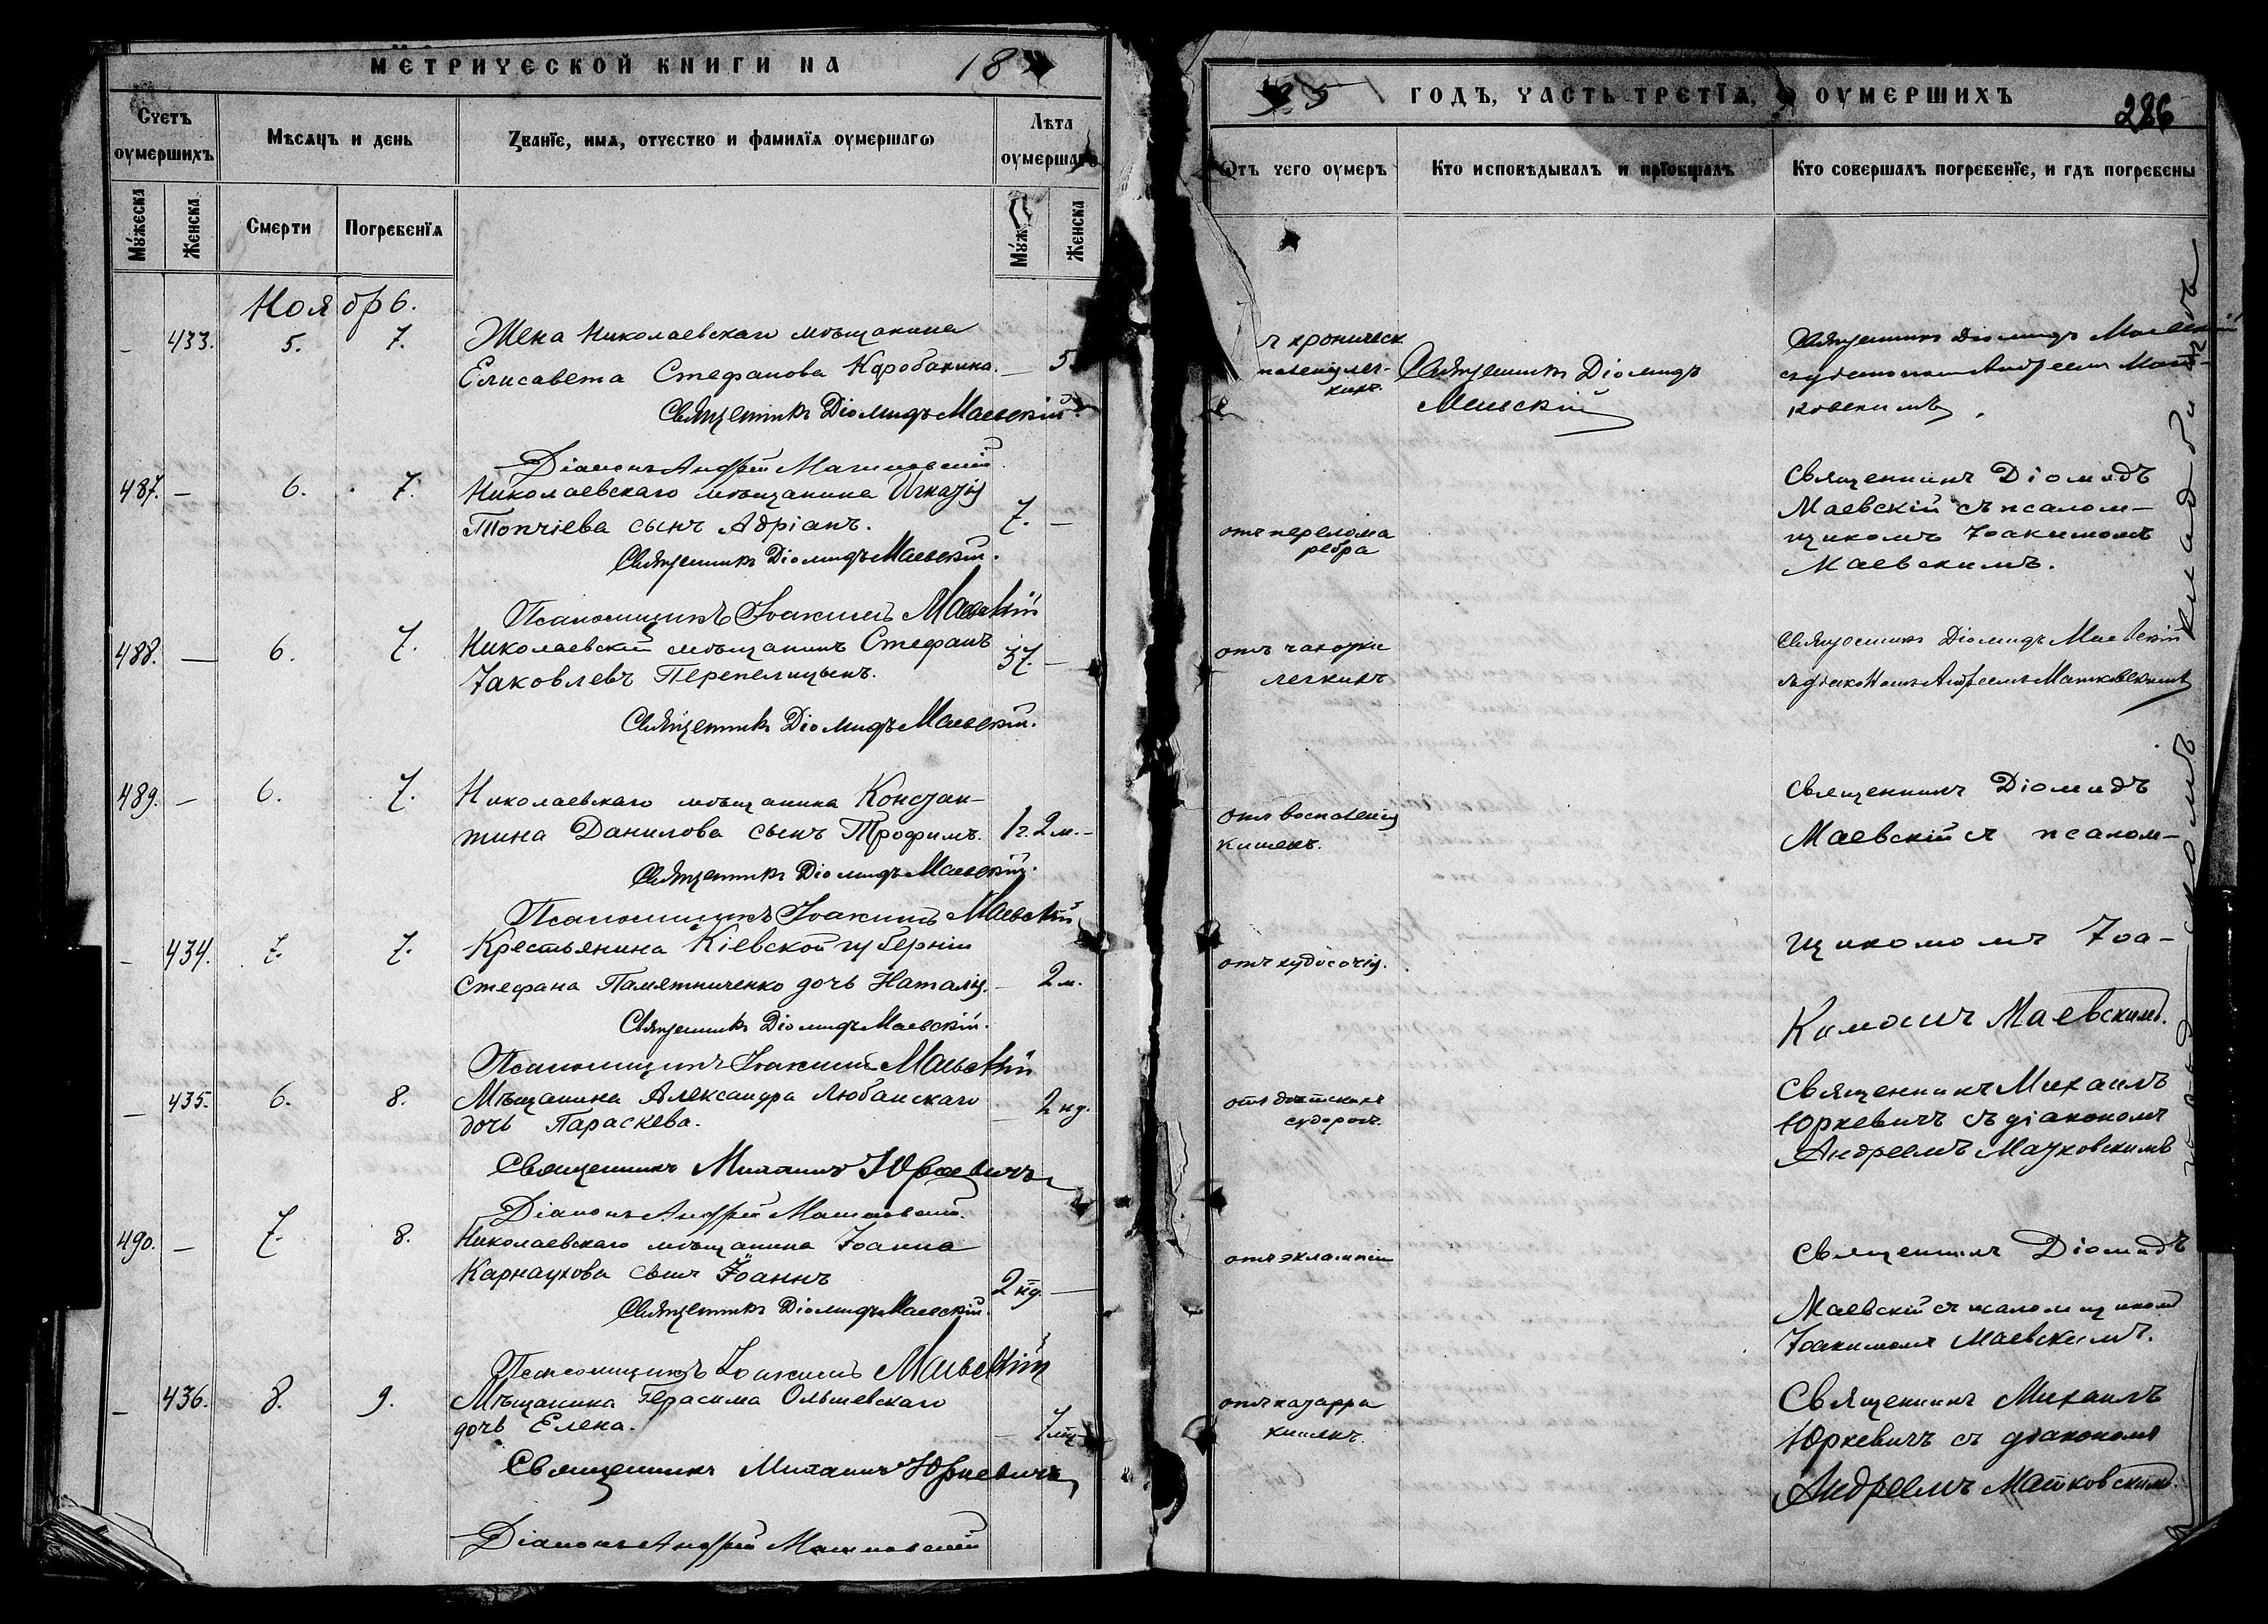 МЕТРИЧЕСКОЙ КНИГИ НА 18
95 ГОДЪ, ЧАСТЬ ТРЕТІЯ, ОУМЕРШИХЪ
286
Счетъ оумершихъ
Мѣсяцъ и день
Званїе, имя, отчество и фамилїя оумершагѡ
Лѣта оумершагѡ
Ѿтъ чего оумеръ
Кто исповѣдывалъ и прїобщалъ
Кто совершалъ погребенїе, и гдѣ погребены
Мꙋжеска
Женска
Смерти
Погребенїя
Мꙋж
Женска
Ноябрь.
– 433. 5. 7.
Жена Николаевскаго мѣщанина
Елисавета Стефанова Коробакина. — 5
Священникъ Діомидъ Маевскій.
Діаконъ Андрей Матковскій
хроническ
Священникъ Діомидъ
Маевскій
Священникъ Діомидъ Маевскій
съ діакономъ Андреемъ Мат-
ковскимъ.
487. – 6. 7.
Николаевскаго мѣщанина Игнатія
Топчіева сынъ Адріанъ. 7. –
Священникъ Діомидъ Маевскій.
Псаломщикъ Іоакимъ Маевскій
отъ перелома
ребра
Священникъ Діомидъ
Маевскій съ псалом-
щикомъ Іоакимомъ
Маевскимъ.
488. — 6. 7.
Николаевскій мѣщанинъ Стефанъ
Іаковлевъ Перепелицынъ. 37. –
Священникъ Діомидъ Маевскій.
отъ чахотки
легкихъ
Священникъ Діомидъ Маевскій
съ діакономъ Андреемъ Матковскимъ
489. – 6. 7.
Николаевскаго мѣщанина Констан-
тина Данилова сынъ Трофимъ. 1 г. 2 м. –
Священникъ Діомидъ Маевскій.
Псаломщикъ Іоакимъ Маевскій
отъ воспаленія
кишекъ.
Священникъ Діомидъ
Маевскій съ псалом-
щикомомъ Іоа-
кимомъ Маевскимъ.
– 434. 7. 7.
Крестьянина Кіевской губерніи
Стефана Памятниченко дочь Наталія. – 2 м.
Священникъ Діомидъ Маевскій.
Псаломщикъ Іоакимъ Маевскій
отъ худосочія.
– 435. 6. 8.
Мѣщанина Александра Любанскаго
дочь Параскева. — 2 нд.
Священникъ Михаилъ Юркевичъ
Діаконъ Андрей Матковскій.
отъ дѣтскихъ
судорогъ.
Священникъ Михаилъ
Юркевичъ съ діакономъ
Андреемъ Матковскимъ
490. – 7. 8.
Николаевскаго мѣщанина Іоанна
Карнаухова сынъ Іоаннъ 2 нд. —
Священникъ Діомидъ Маевскій.
Псаломщикъ Іоакимъ Маевскій
отъ эклампсіи
Священникъ Діомидъ
Маевскій съ псаломщикомъ
Іоакимомъ Маевскимъ.
– 436. 8. 9.
Мѣщанина Герасима Ольшевскаго
дочь Елена. – 7 мц
Священникъ Михаилъ Юркевичъ
Діаконъ Андрей Матковскій
отъ катарра
кишекъ.
Священникъ Михаилъ
Юркевичъ съ діакономъ
Андреемъ Матковскимъ.